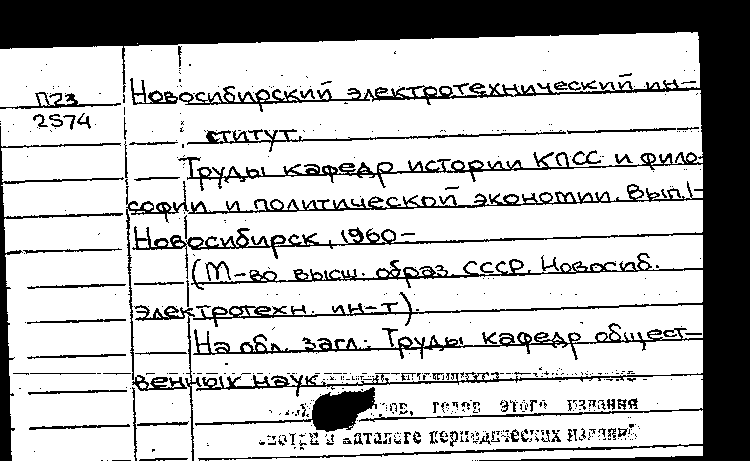 П23
2574
Новосибирский электротехнический ин-
ститут.
Труды кафедр истории КПСС и фило-
софии и политической экономии. Вып.1-
Новосибирск, 1960-
(М-во высш. образ. СССР. Новосиб.
электротехн. ин-т).
На обл. загл.: Труды кафедр общест-
венных наук.
годов этого издания
каталоге периодических изданий